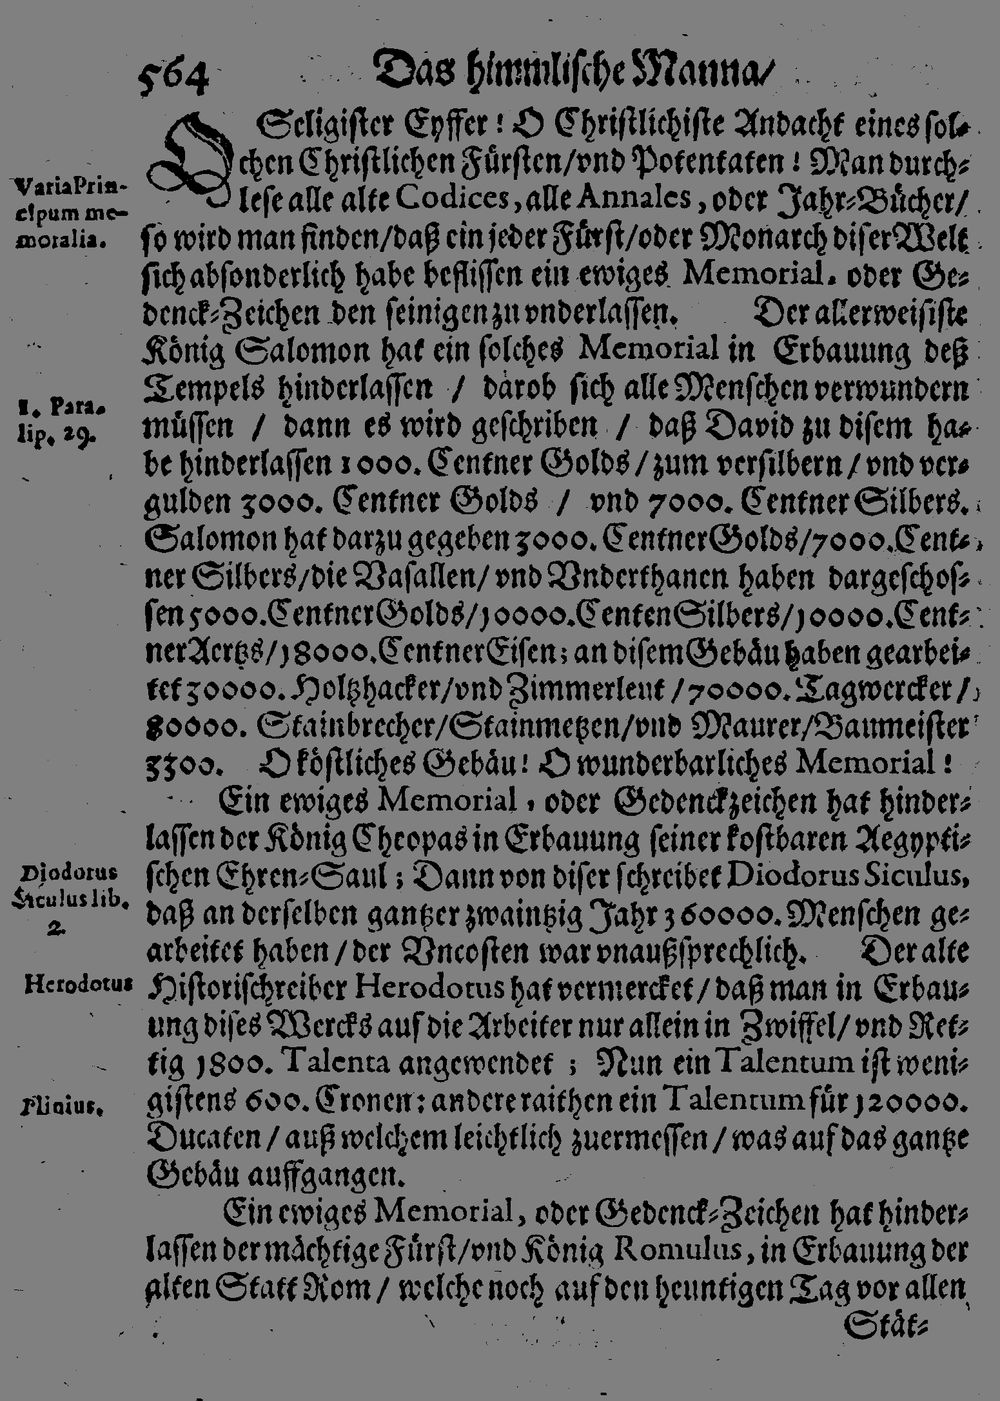 564 Das himmlische Manna/
O Seligister Eyffer! O Christlichiste Andacht eines sol-
chen Christlichen Fürsten/vnd Potentaten! Man durch-
lese alle alte Codices, alle Annales, oder Jahr-Bücher/
Varia Prin-
cipum me-
moralia.
so wird man finden/daß ein jeder Fürst/oder Monarch diser Welt
sich absonderlich habe beflissen ein ewiges Memorial. oder Ge-
denck-Zeichen den seinigen zu vnderlassen. Der allerweisiste
König Salomon hat ein solches Memorial in Erbauung deß
Tempels hinderlassen / darob sich alle Menschen verwundern
1. Para-
lip. 29.
müssen / dann es wird geschriben / daß David zu disem ha-
be hinderlassen 1000. Centner Golds/zum versilbern/vnd ver-
gulden 3000. Centner Golds / vnd 7000. Centner Silbers.
Salomon hat darzu gegeben 3000. Centner Golds/7000. Cent-
ner Silbers/die Vasallen/vnd Vnderthanen haben dargeschos-
sen 5000. Centner Golds/10000. Centen Silbers/10000. Cent-
ner Aertzs/18000. Centner Eisen; an disem Gebäu haben gearbei-
tet 30000. Holtzhacker/vnd Zimmerleut/70000. Tagwercker/
80000. Stainbrecher/Stainmetzen/vnd Maurer/Baumeister
3300. O köstliches Gebäu! O wunderbarliches Memorial!
Ein ewiges Memorial, oder Gedenckzeichen hat hinder-
lassen der König Cheopas in Erbauung seiner kostbaren Aegypti-
schen Ehren-Saul; Dann von diser schreibet Diodorus Siculus,
Diodorus
Siculus lib.
2.
daß an derselben gantzer zwaintzig Jahr 360000. Menschen ge-
arbeitet haben/der Vncosten war vnaußsprechlich. Der alte
Herodotus
Historischreiber Herodotus hat vermercket/daß man in Erbau-
ung dises Wercks auf die Arbeiter nur allein in Zwiffel/vnd Ret-
tig 1800. Talenta angewendet; Nun ein Talentum ist weni-
Plinius.
gistens 600. Cronen: andere raithen ein Talentum für 120000.
Ducaten/auß welchem leichtlich zuermessen/was auf das gantze
Gebäu auffgangen.
Ein ewiges Memorial, oder Gedenck-Zeichen hat hinder-
lassen der mächtige Fürst/vnd König Romulus, in Erbauung der
alten Statt Rom/welche noch auf den heuntigen Tag vor allen
Stät-